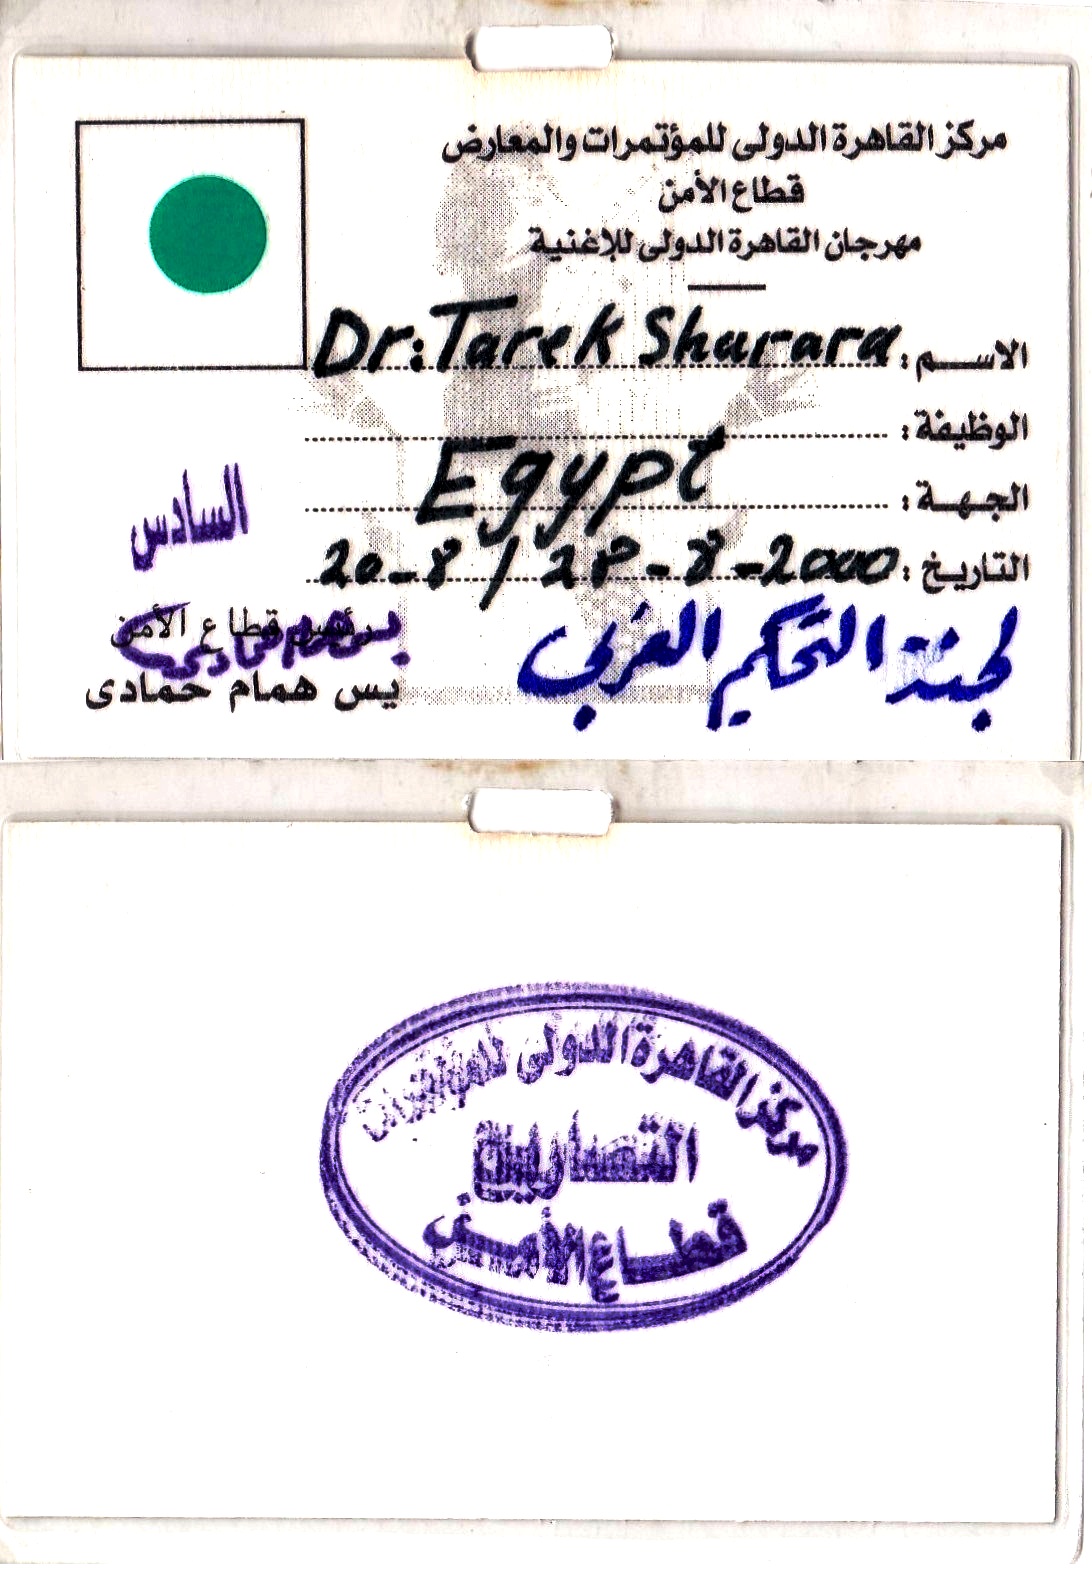 مركز القاهرة الدولى للمؤتمرات والمعارض
قطاع الأمن
مهرجان القاهرة الدولى للإغنية
الاسم : Dr: Tarek Sharara
الوظيفة :
الجهة : Egypt
التاريخ : 20-8 / 28-8-2000
السادس
لجنة التحكيم العربي
رئيس قطاع الأمن
يس همام حمادى
مركز القاهرة الدولى للمؤتمرات
التصاريح
قطاع الأمن